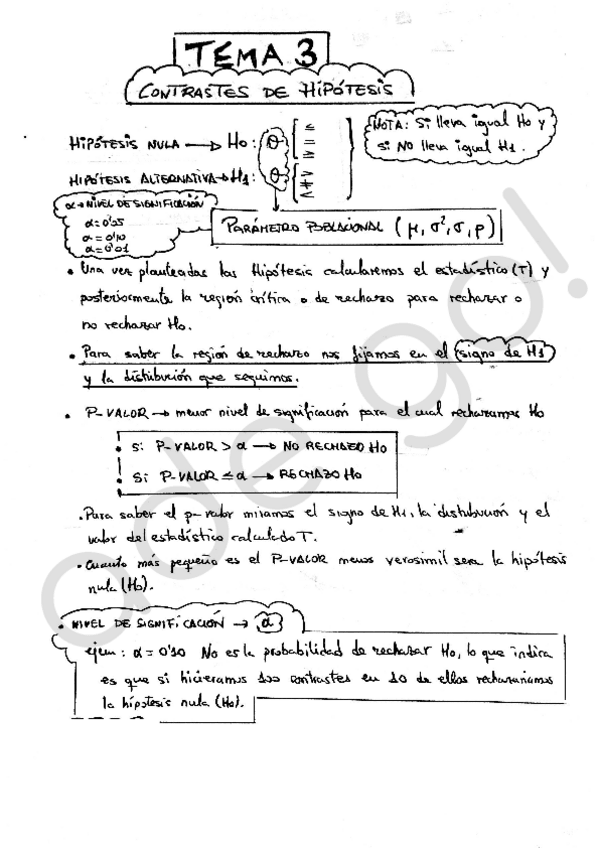 TEMA 3
CONTRASTES DE HIPÓTESIS
HIPÓTESIS NULA → H0: θ ≤ = ≥
NOTA: Si lleva igual H0 y
si NO lleva igual H1.
HIPÓTESIS ALTERNATIVA → H1: θ < ≠ >
α → NIVEL DE SIGNIFICACIÓN
α = 0'05
α = 0'10
α = 0'01
PARÁMETRO POBLACIONAL (μ, σ², σ, p)
• Una vez planteadas las Hipótesis calcularemos el estadístico (T) y
posteriormente la región crítica o de rechazo para rechazar o
no rechazar H0.
• Para saber la región de rechazo nos fijamos en el signo de H1
y la distribución que seguimos.
• P-VALOR → menor nivel de significación para el cual rechazamos H0
• Si P-VALOR > α → NO RECHAZO H0
• Si P-VALOR ≤ α → RECHAZO H0
• Para saber el p-valor miramos el signo de H1, la distribución y el
valor del estadístico calculado T.
• Cuanto más pequeño es el P-VALOR menos verosimil sera la hipótesis
nula (H0).
• NIVEL DE SIGNIFICACIÓN → α
ejem: α = 0'10 No es la probabilidad de rechazar H0, lo que indica
es que si hicieramos 100 contrastes en 10 de ellos rechazariamos
la hipótesis nula (H0).
ade go!